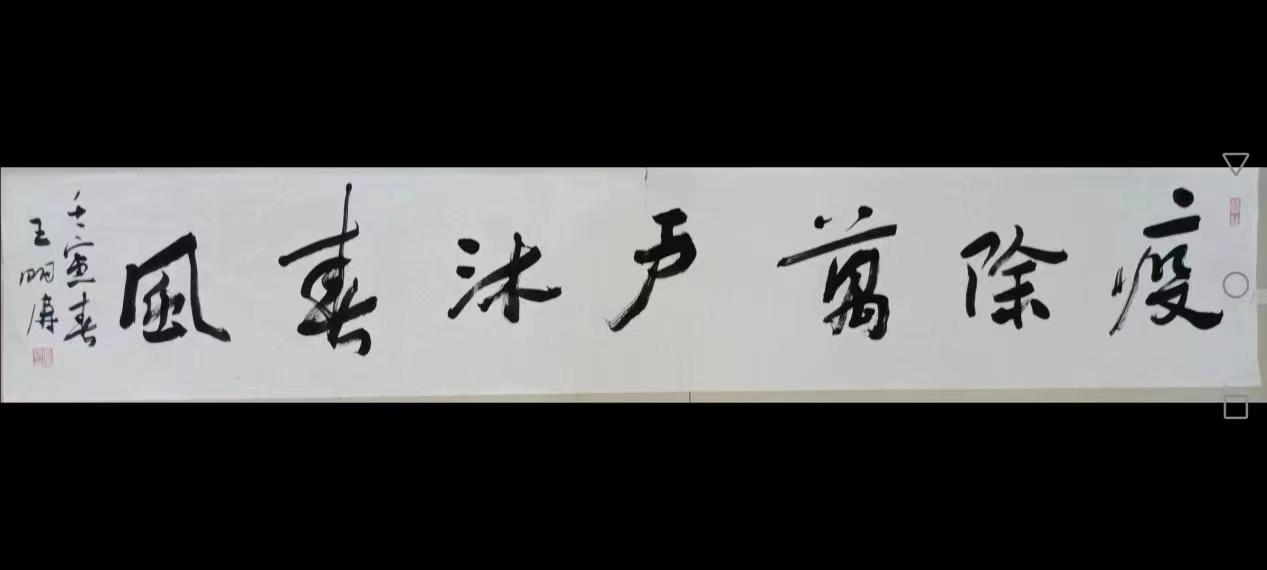 疫除萬户沐春風
壬寅春
王明